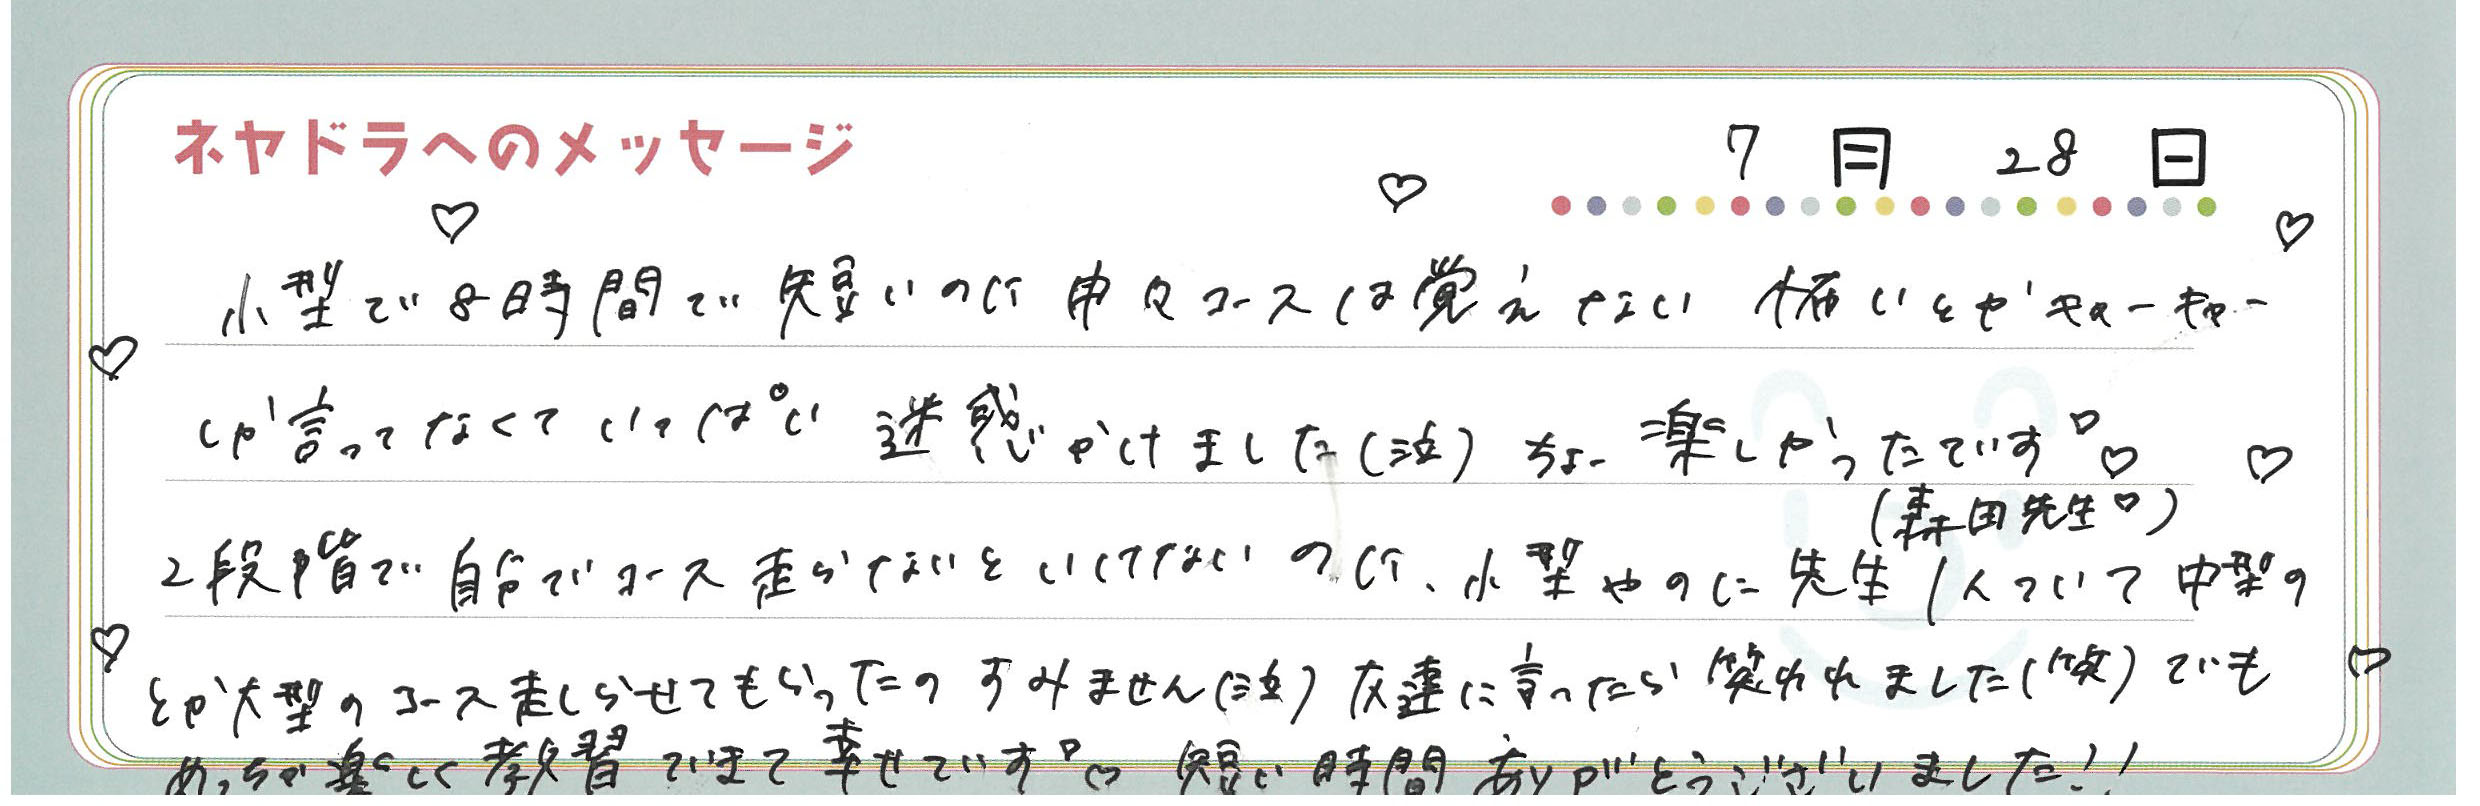 ネヤドラへのメッセージ
7月28日
小型で8時間で短いのに中々コースは覚えれない 怖いとかキャーキャー
しか言ってなくていっぱい迷惑かけました(泣) ちょー楽しかったです♡♡
(森田先生♡)
2段階で自分でコース走らないといけないのに、小型やのに先生1人ついて中型の
とか大型のコース走しらせてもらったの すみません(泣) 友達に言ったら笑われました(笑) でも
めっちゃ楽しく教習できて幸せです♡♡ 短い時間ありがとうございました!!